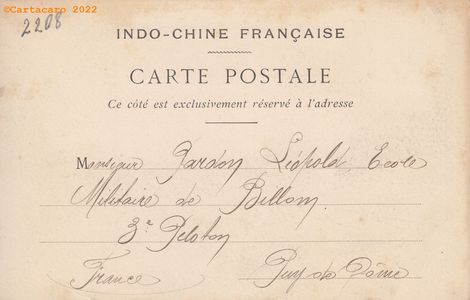 ©Cartacaro 2022
2208
INDO-CHINE FRANÇAISE
CARTE POSTALE
Ce côté est exclusivement réservé à l'adresse
Monsieur Jardon Léopold, Ecole
Militaire de Billom
3e Peloton
France Puy de Dôme